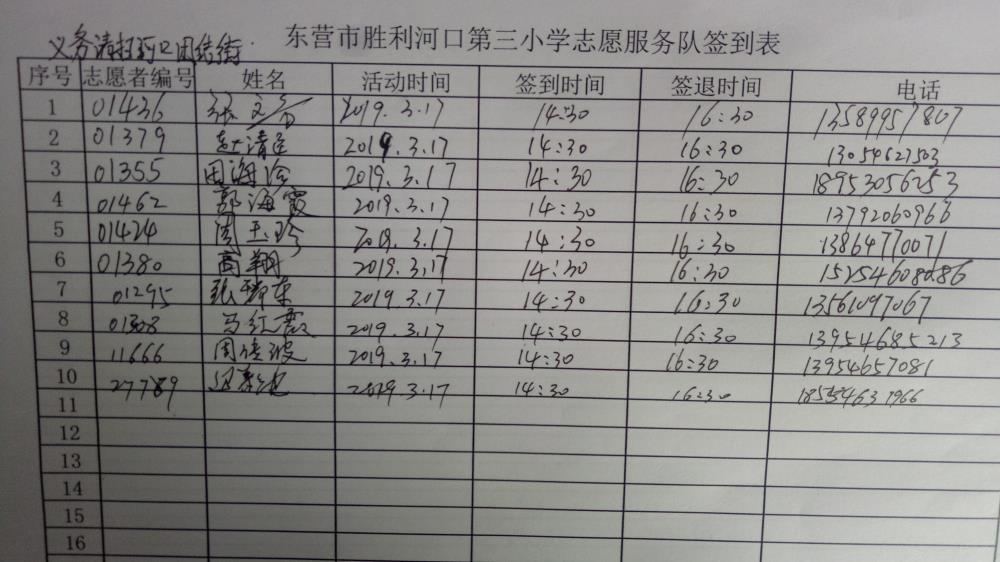 东营市胜利河口第三小学志愿服务队签到表
义务清扫河口团结街
序号 志愿者编号 姓名 活动时间 签到时间 签退时间 电话
1 01436 2019.3.17 14:30 16:30 13589957807
2 01379 2019.3.17 14:30 16:30 13054627503
3 01355 2019.3.17 14:30 16:30 18953056253
4 01462 郭海霞 2019.3.17 14:30 16:30 13792060966
5 01424 周玉珍 2019.3.17 14:30 16:30 13864770071
6 01380 高翔 2019.3.17 14:30 16:30 15254608086
7 01295 2019.3.17 14:30 16:30 13561097067
8 01308 马红霞 2019.3.17 14:30 16:30 13954685213
9 11666 2019.3.17 14:30 16:30 13954657081
10 27789 2019.3.17 14:30 16:30
11
12
13
14
15
16